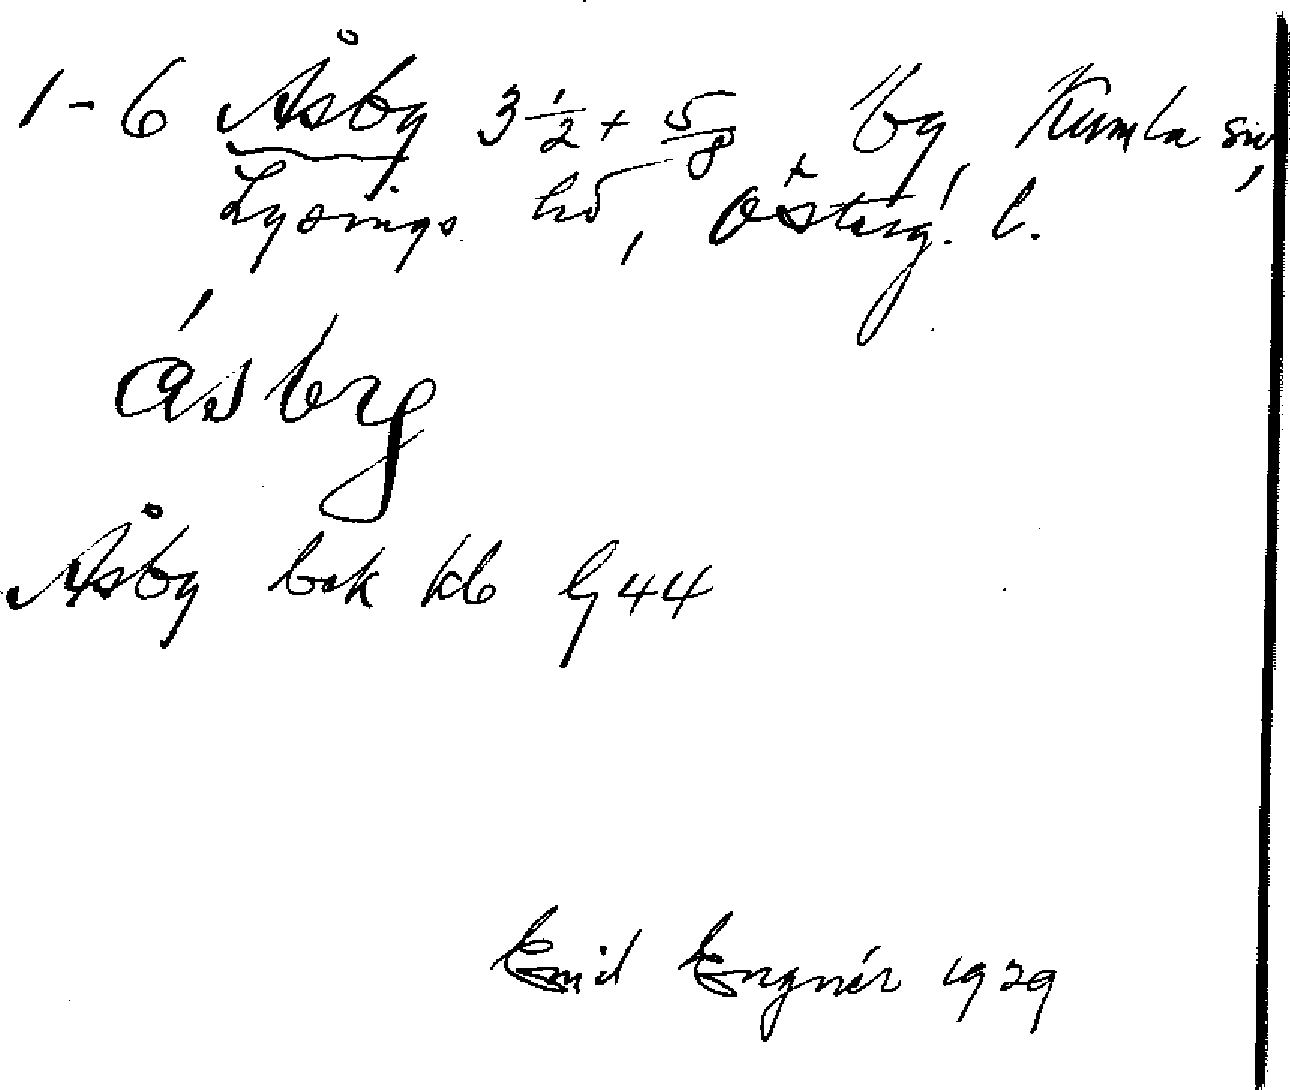 1-6 Åsby 3 1/2 + 5/8, by, Kumla sn,
Lysings hd, Österg. l.
åsby
Åsby bok kb Ej 44
Emil Engnér 1929